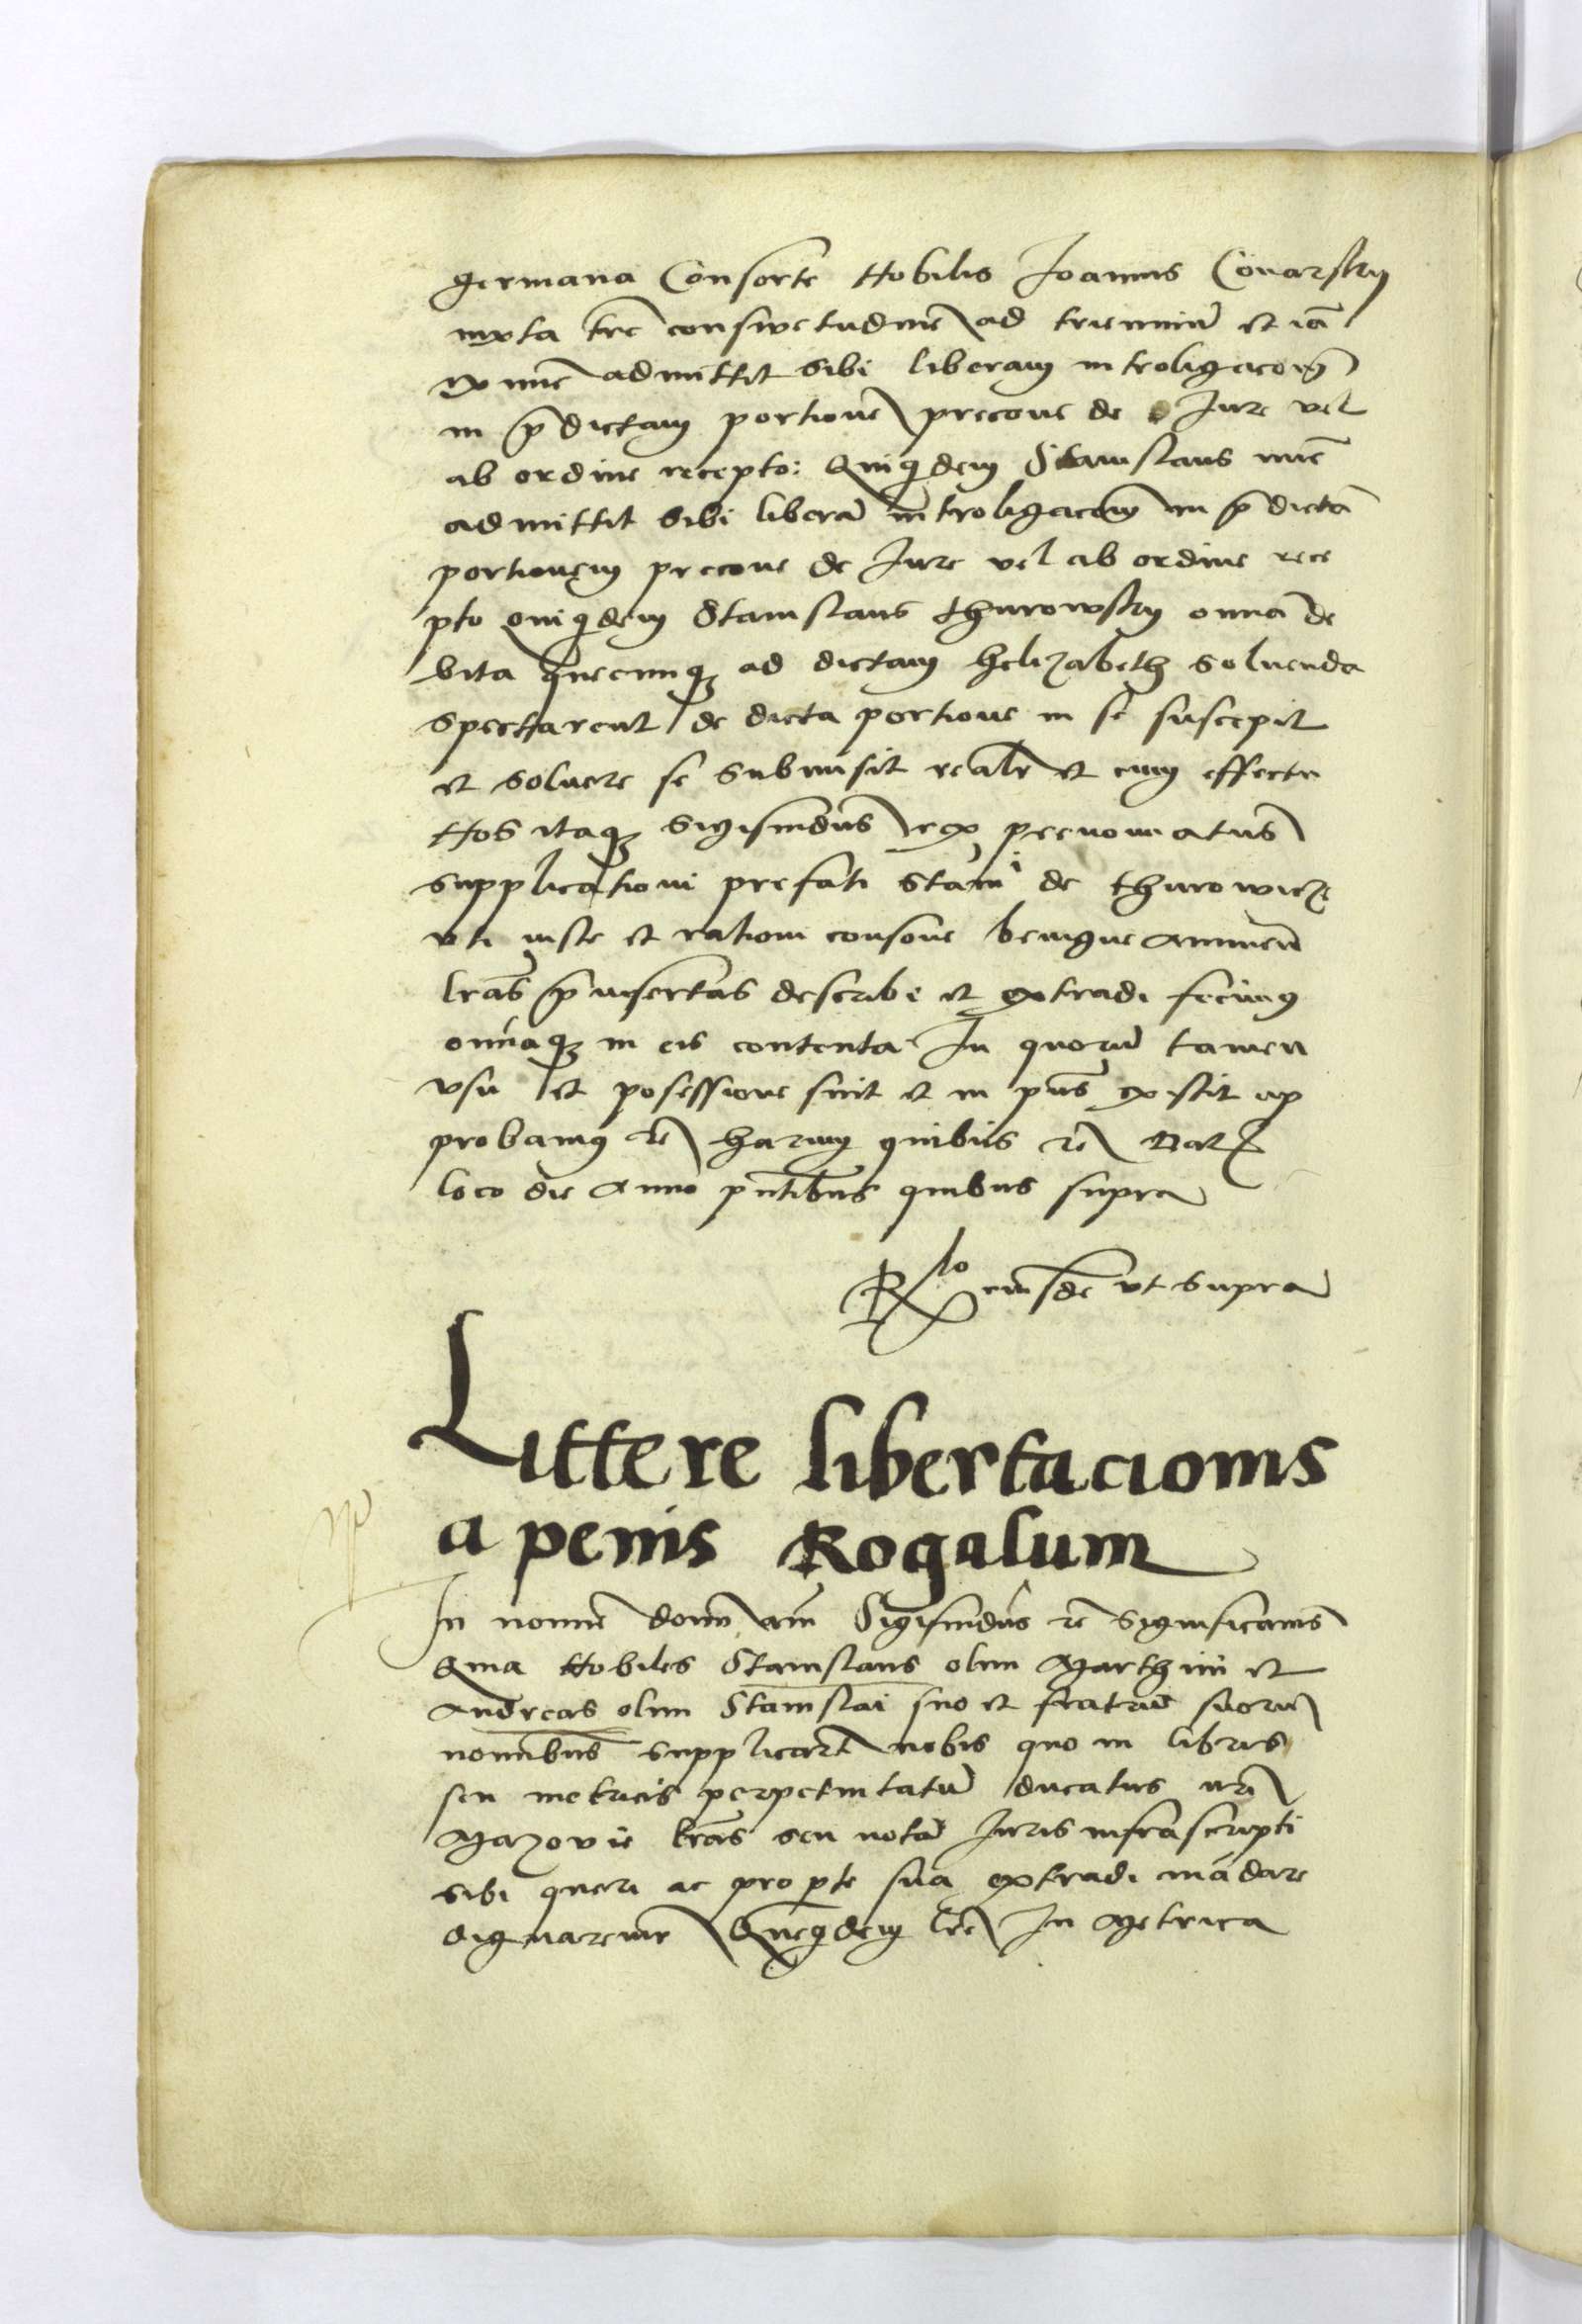 germana Consorte Nobilis Joannis Conarsky
iuxta tre͞ conswetudine͞ ad trienniu͞ et ia͞
ex nu͞c admittit sibi liberam introligaco͞em
in p͞dictam portione͞ precone de Jure vel
ab ordine recepto: Quiq͞dem Stanislaus nu͞c
admittit sibi libera͞ introligaco͞em in p͞dicta͞
portionem precone de Jure vel ab ordine rece
pto quiq͞dem Stanislaus thurowsky om͞ia de
bita quecunq; ad dictam helizabeth soluenda
spectarent de dicta portione in se suscepit
et soluere se submisit realr͞ et cum effectu
Nos itaq; Sigismu͞dus rex prenominatus
supplicationi prefati Stani de thurowicze
vti iuste et rationi consone benigne annuen͞
lr͞as p͞insertas describi et extradi fecimus
om͞iaq; in eis contenta In quoru͞ tamen
vsu et posessione fuit et in pn͞s existit ap
probamus r͞e harum quibus r͞e Dat͞
loco die Anno pn͞tibus quibus supra
R͞lo eiusde͞ vt supra
Littere libertacionis
a penis Rogalum
In nomine domini am͞ Sigismu͞dus r͞e significamus
Quia Nobiles Stanislaus olim Marthini et
Andreas olim Stanislai suo et fratru͞ suoru͞
nominibus supplicaru͞t nobis quo in libris
seu metricis perpetuitatu͞ ducatus nr͞i
Mazovie lr͞as seu nota͞ Juris infrascripti
sibi queri ac pro p͞te sua extradi ma͞dare
dignaremur Queq͞dem lr͞e In Metrica